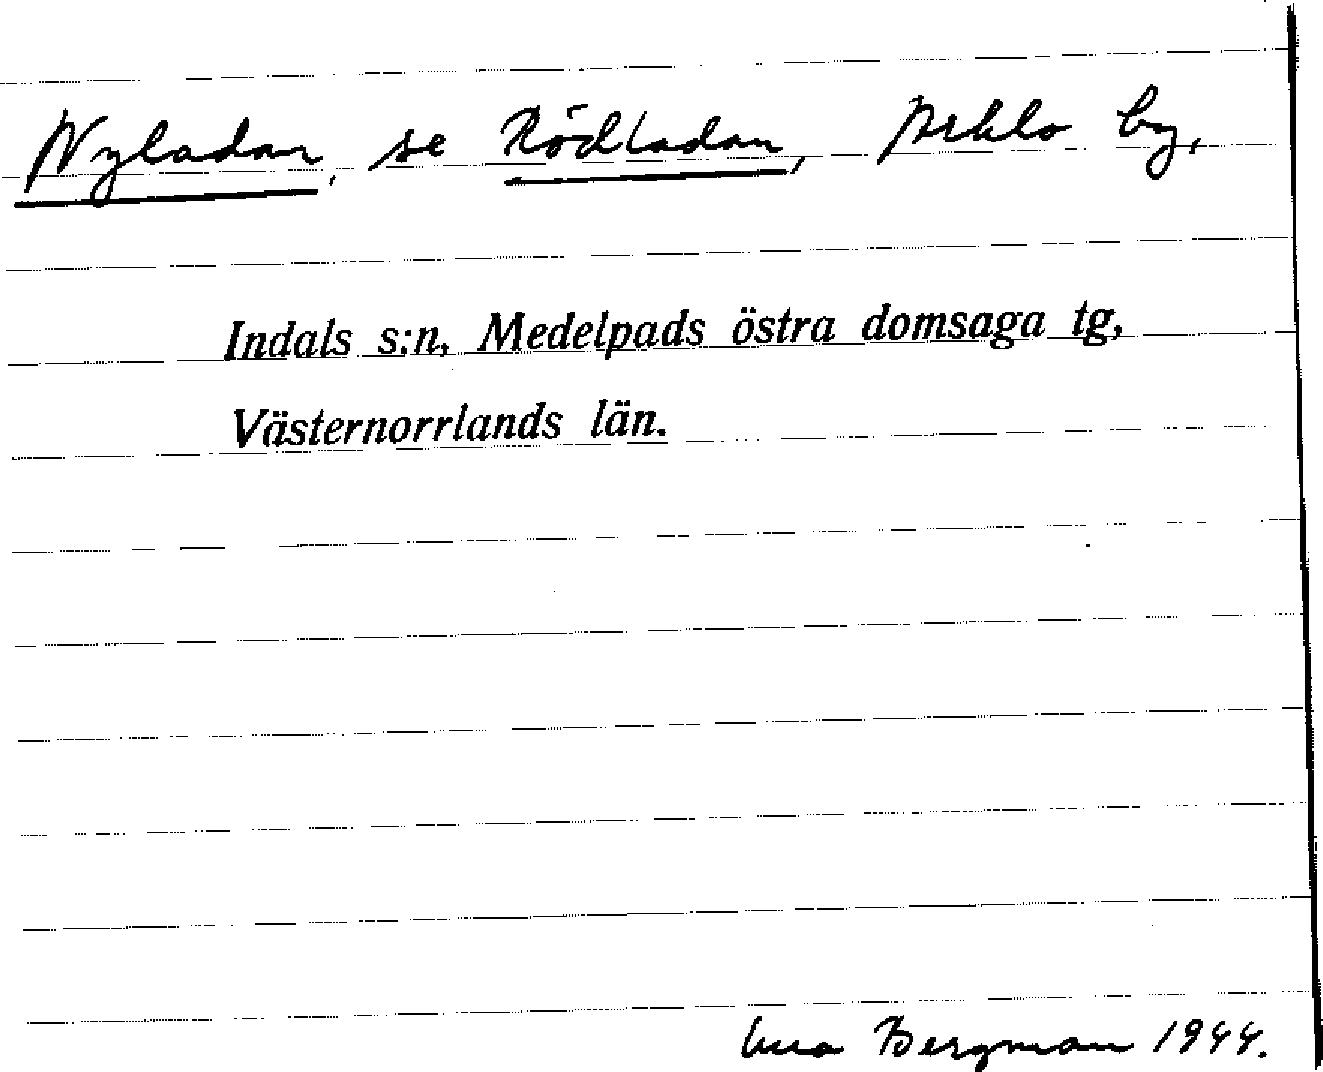 Nyladan, se Rödladan, by,
Indals s:n, Medelpads östra domsaga tg,
Västernorrlands län.
Bergman 1944.